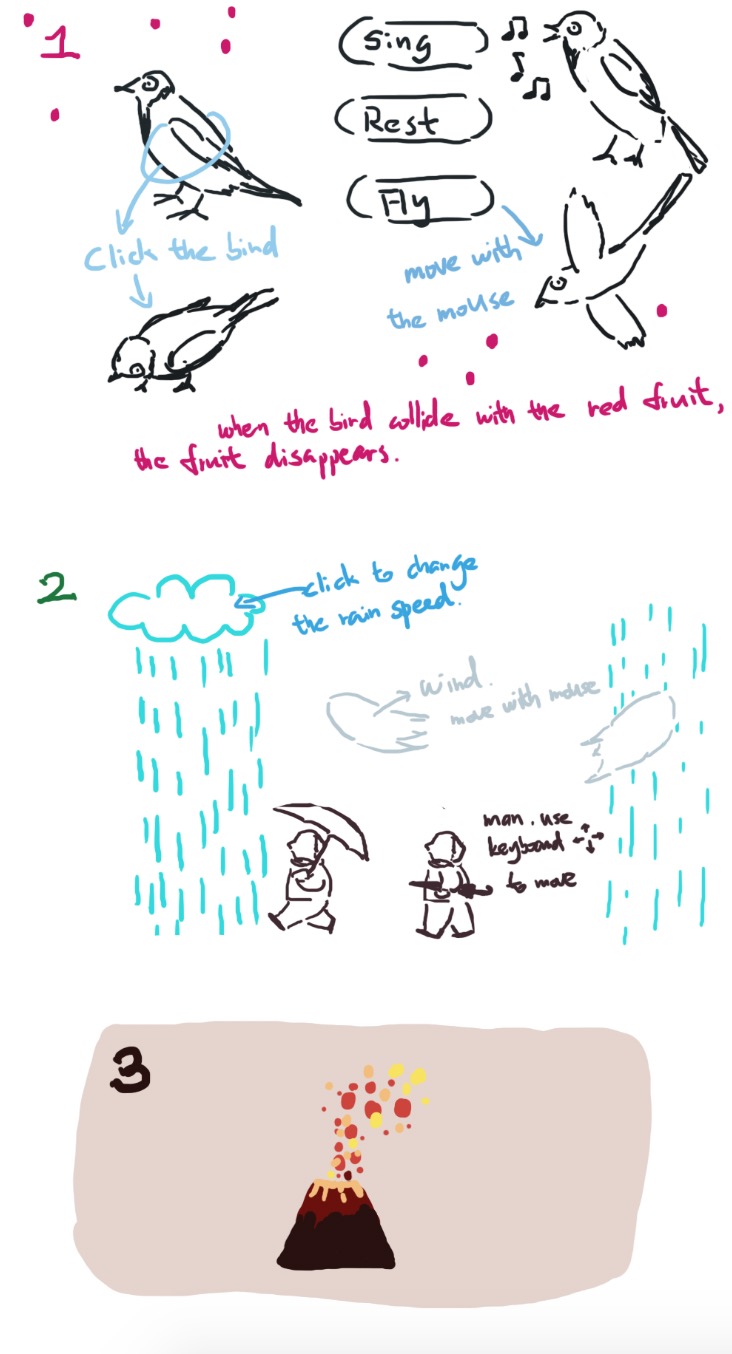 1
Sing
Rest
Fly
Click the bird
move with
the mouse
when the bird collide with the red fruit,
the fruit disappears.
2
click to change
the rain speed.
Wind.
move with mouse
man. use
keyboard
to move
3